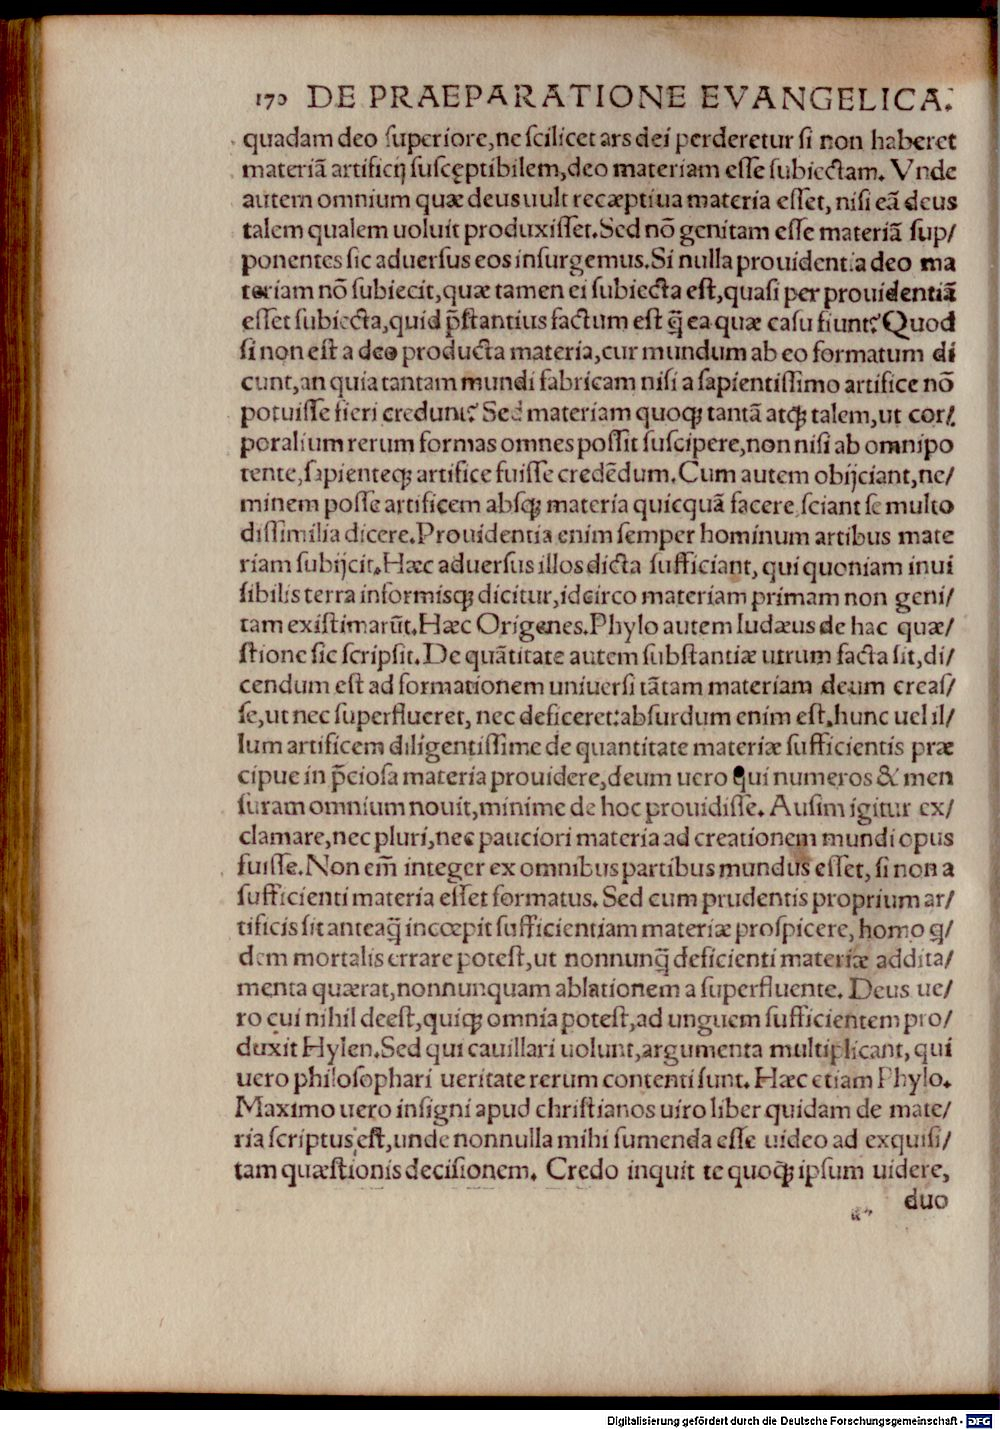 170 DE PRAEPARATIONE EVANGELICA.
quadam deo superiore,ne scilicet ars dei perderetur si non haberet
materiã artificij suscęptibilem,deo materiam esse subiectam. Vnde
autem omnium quæ deus uult recæptiua materia esset, nisi eã deus
talem qualem uoluit produxisset.Sed nõ genitam esse materiã sup/
ponentes sic aduersus eos insurgemus.Si nulla prouidentia deo ma
teriam nõ subiecit,quæ tamen ei subiecta est,quasi per prouidentiã
esset subiecta,quid p̃stantius factum est q̃ ea quæ casu fiunt?Quod
si non est a deo producta materia,cur mundum ab eo formatum di
cunt,an quia tantam mundi fabricam nisi a sapientissimo artifice nõ
potuisse fieri credunt? Sed materiam quoqꝫ tantã atqꝫ talem,ut cor/
poralium rerum formas omnes possit suscipere,non nisi ab omnipo
tente,sapienteqꝫ artifice fuisse credẽdum.Cum autem obijciant,ne/
minem posse artificem absqꝫ materia quicquã facere,sciant se multo
dissimilia dicere.Prouidentia enim semper hominum artibus mate
riam subijcit.Hæc aduersus illos dicta sufficiant, qui quoniam inui
sibilis terra informisqꝫ dicitur,idcirco materiam primam non geni/
tam existimarũt.Hæc Origenes.Phylo autem Iudæus de hac quæ/
stione sic scripsit.De quãtitate autem substantiæ utrum facta sit,di/
cendum est ad formationem uniuersi tãtam materiam deum creas/
se,ut nec superflueret, nec deficeret:absurdum enim est,hunc uel il/
lum artificem diligentissime de quantitate materiæ sufficientis præ
cipue in p̃ciosa materia prouidere,deum uero qui numeros & men
suram omnium nouit,minime de hoc prouidisse. Ausim igitur ex/
clamare,nec pluri,nec pauciori materia ad creationem mundi opus
fuisse.Non em̃ integer ex omnibus partibus mundus esset, si non a
sufficienti materia esset formatus. Sed cum prudentis proprium ar/
tificis sit anteaq̃ incœpit sufficientiam materiæ prospicere, homo q/
dem mortalis errare potest,ut nonnunq̃ deficienti materiæ addita/
menta quærat,nonnunquam ablationem a superfluente. Deus ue/
ro cui nihil deest,quiqꝫ omnia potest,ad unguem sufficientem pro/
duxit Hylen.Sed qui cauillari uolunt,argumenta multiplicant, qui
uero philosophari ueritate rerum contenti sunt. Hæc etiam Phylo.
Maximo uero insigni apud christianos uiro liber quidam de mate/
ria scriptus est,unde nonnulla mihi sumenda esse uideo ad exquisi/
tam quæstionis decisionem. Credo inquit te quoqꝫ ipsum uidere,
duo
Digitalisierung gefördert durch die Deutsche Forschungsgemeinschaft - DFG